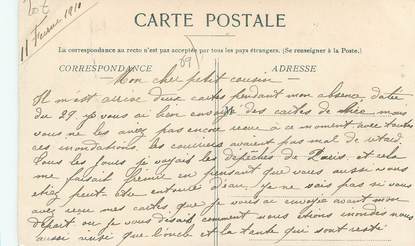 11 Février 1910
CARTE POSTALE
La correspondance au recto n'est pas acceptée par tous les pays étrangers. (Se renseigner à la Poste.)
CORRESPONDANCE
ADRESSE
Mon cher petit cousin
Il m'est arrivé deux cartes pendant mon absence datée
du 29. je vous ai bien envoyé des cartes de mais
vous ne les avez pas encore reçue à ce moment avec toutes
ces inondations, les courriers avaient pas mal de retard.
Tous les jours je voyais les dépêches de Paris, et cela
me faisait peine en pensant que vous aussi vous
étiez peut-être entourée d'eau. Je ne sais pas si vous
avez reçu mes cartes que je vous ai envoyée avant mon
départ ou je vous disais comment nous étions inondés nous
aussi ainsi que l'oncle et la tante qui sont resté